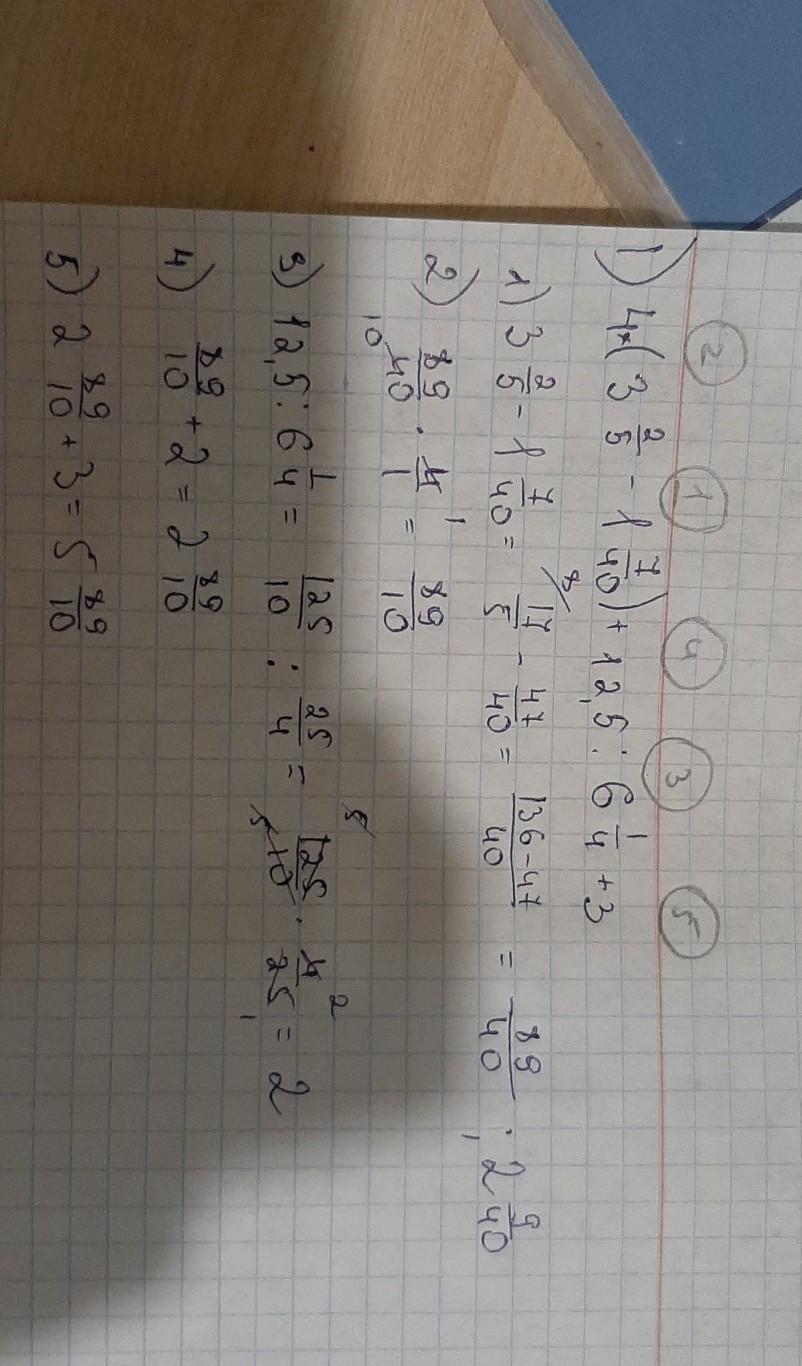 2 1 4 3 5
1) 4*(3 2/5 - 1 7/40) + 12,5 : 6 1/4 + 3
1) 3 2/5 - 1 7/40 = 8/ 17/5 - 47/40 = 136-47/40 = 89/40 ; 2 9/40
2) 89/40 10 · 4/1 1 = 89/10
3) 12,5 : 6 1/4 = 125/10 : 25/4 = 5 125/10 5 · 4/25 2 1 = 2
4) 89/10 + 2 = 2 89/10
5) 2 89/10 + 3 = 5 89/10